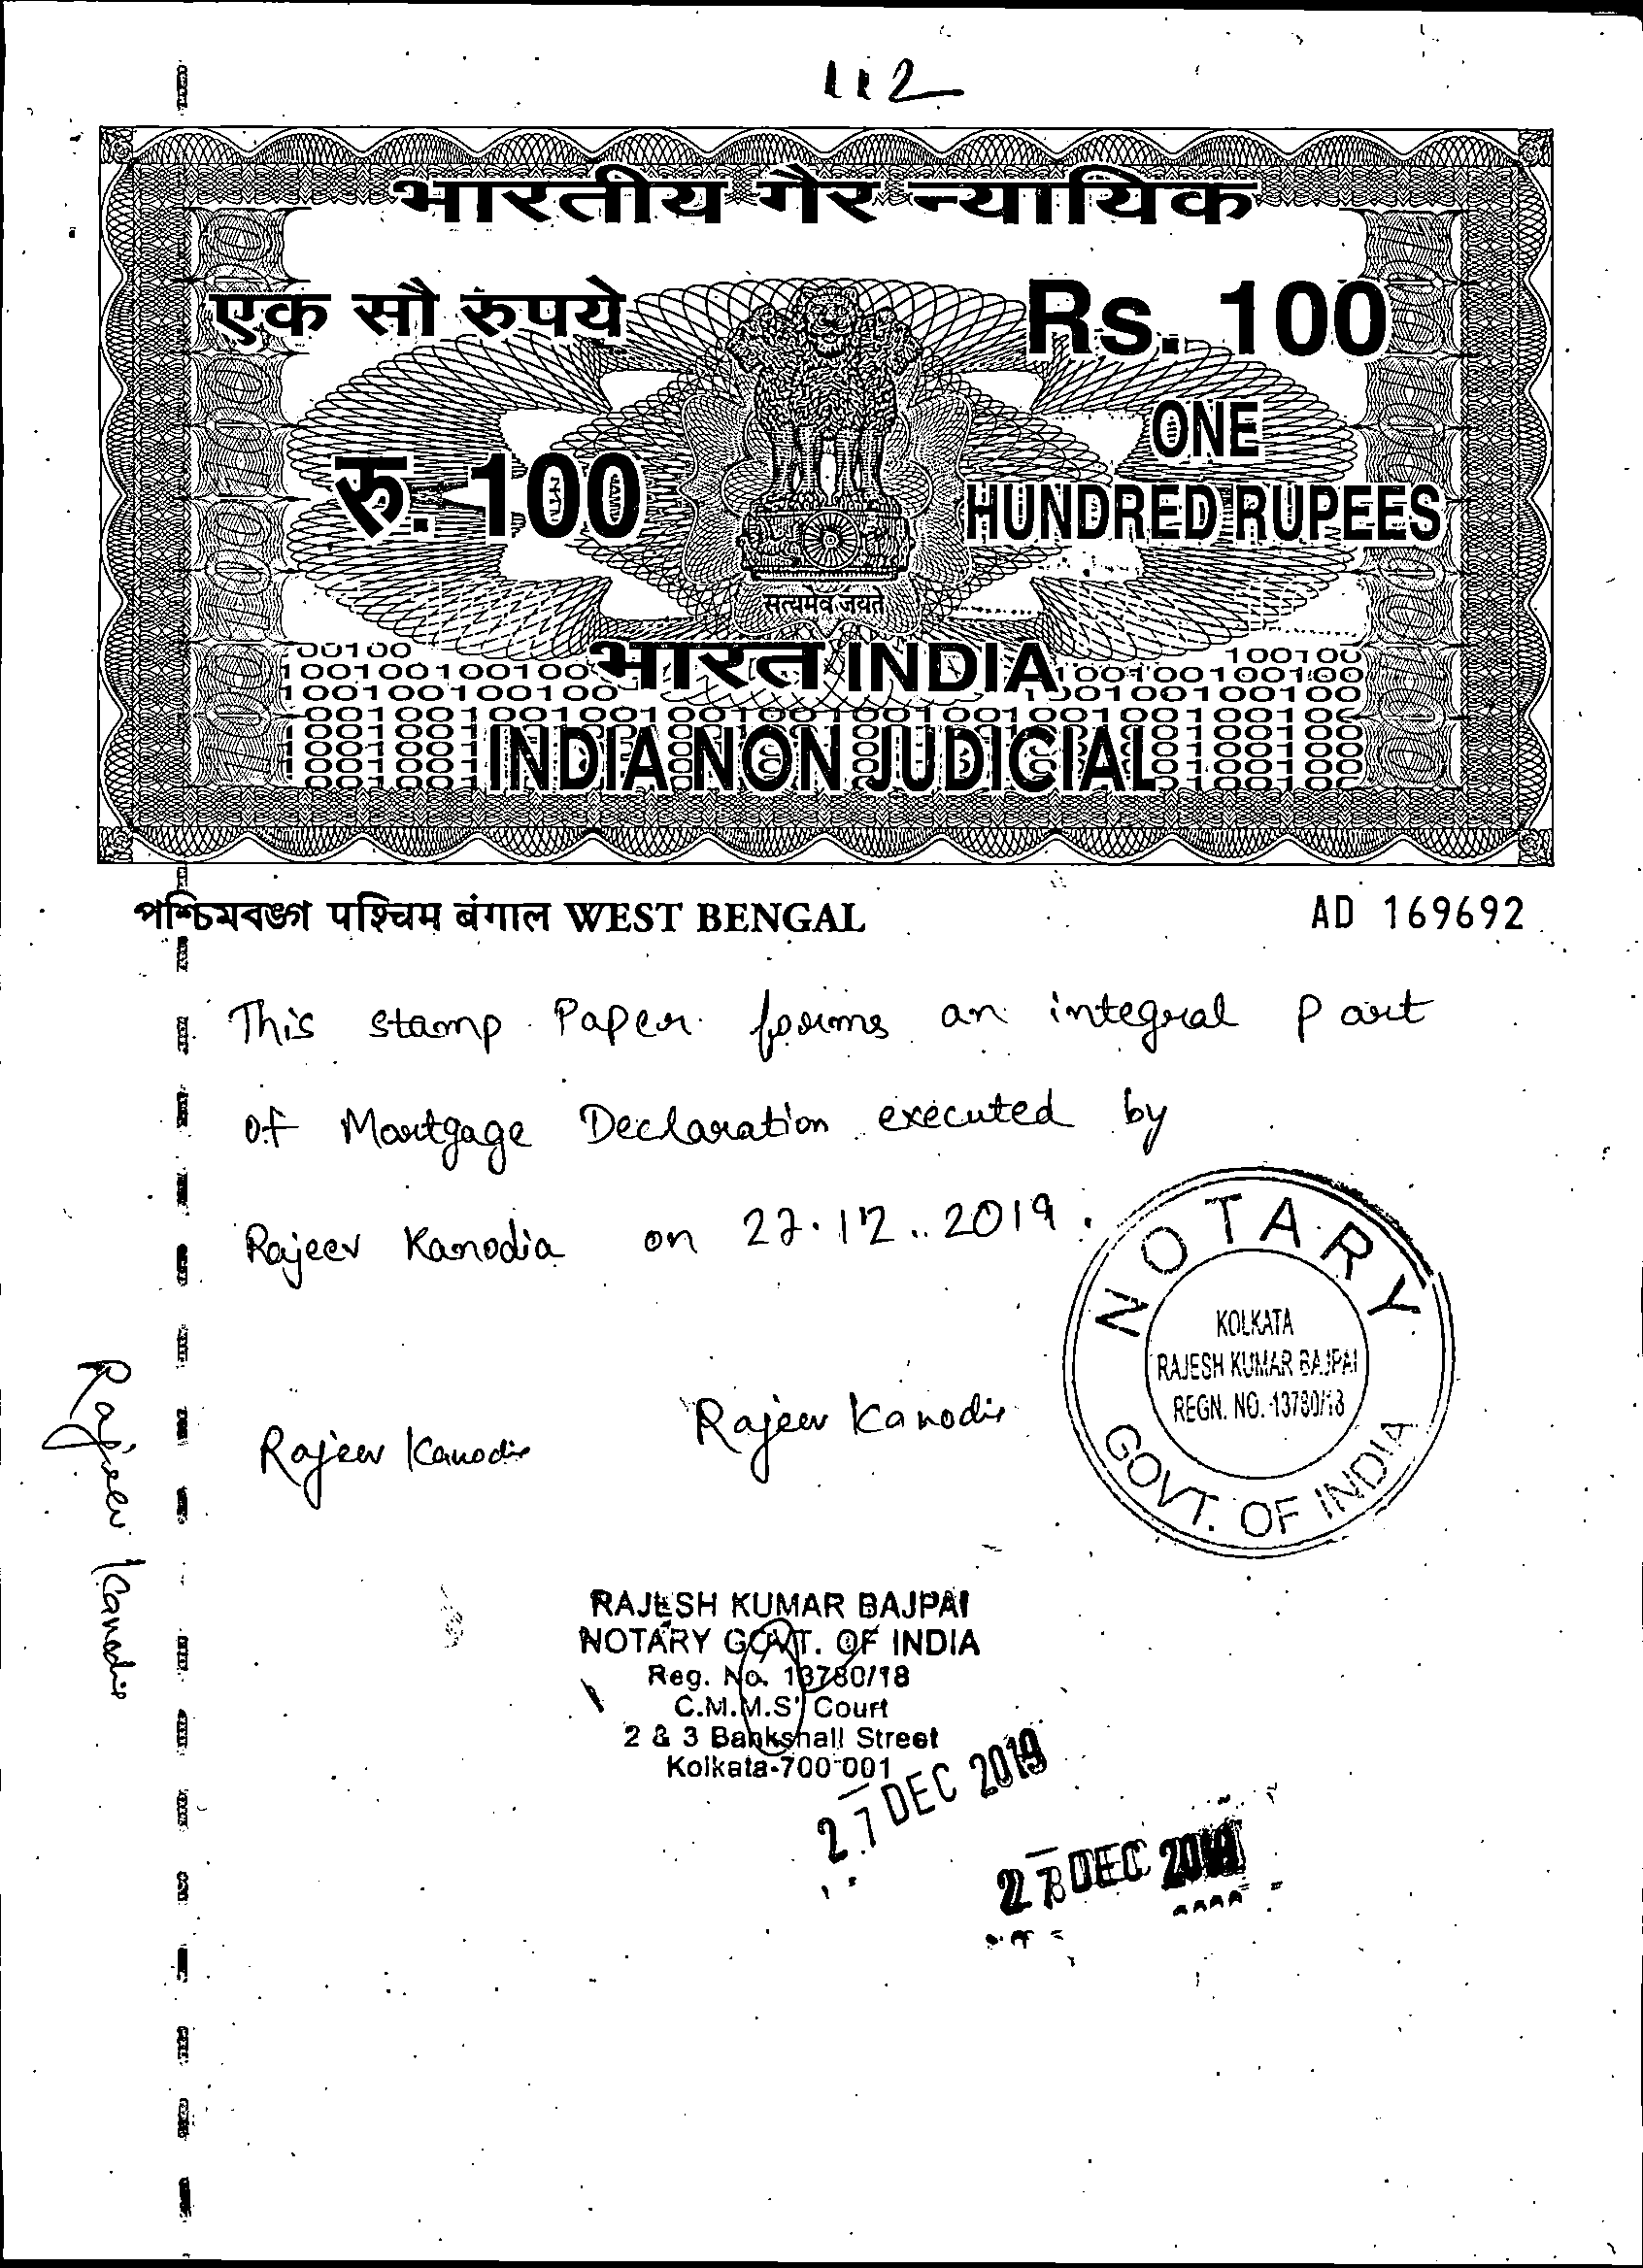 112
भारतीय गैर न्यायिक
एक सौ रुपये
Rs. 100
रु. 100
ONE
HUNDRED RUPEES
सत्यमेव जयते
भारत INDIA
INDIA NON JUDICIAL
পশ্চিমবঙ্গ पश्चिम बंगाल WEST BENGAL
AD 169692
This stamp Paper forms an integral part
of Mortgage Declaration executed by
Rajeev Kanodia on 27.12.2019.
NOTARY
KOLKATA
RAJESH KUMAR BAJPAI
REGN. NO.-13780/18
GOVT. OF INDIA
Rajeev Kanodia
Rajeev Kanodia
Rajeev Kanodia
RAJESH KUMAR BAJPAI
NOTARY GOVT. OF INDIA
Reg. No. 13780/18
C.M.M.S' Court
2 & 3 Bankshall Street
Kolkata-700 001
27 DEC 2019
DEC